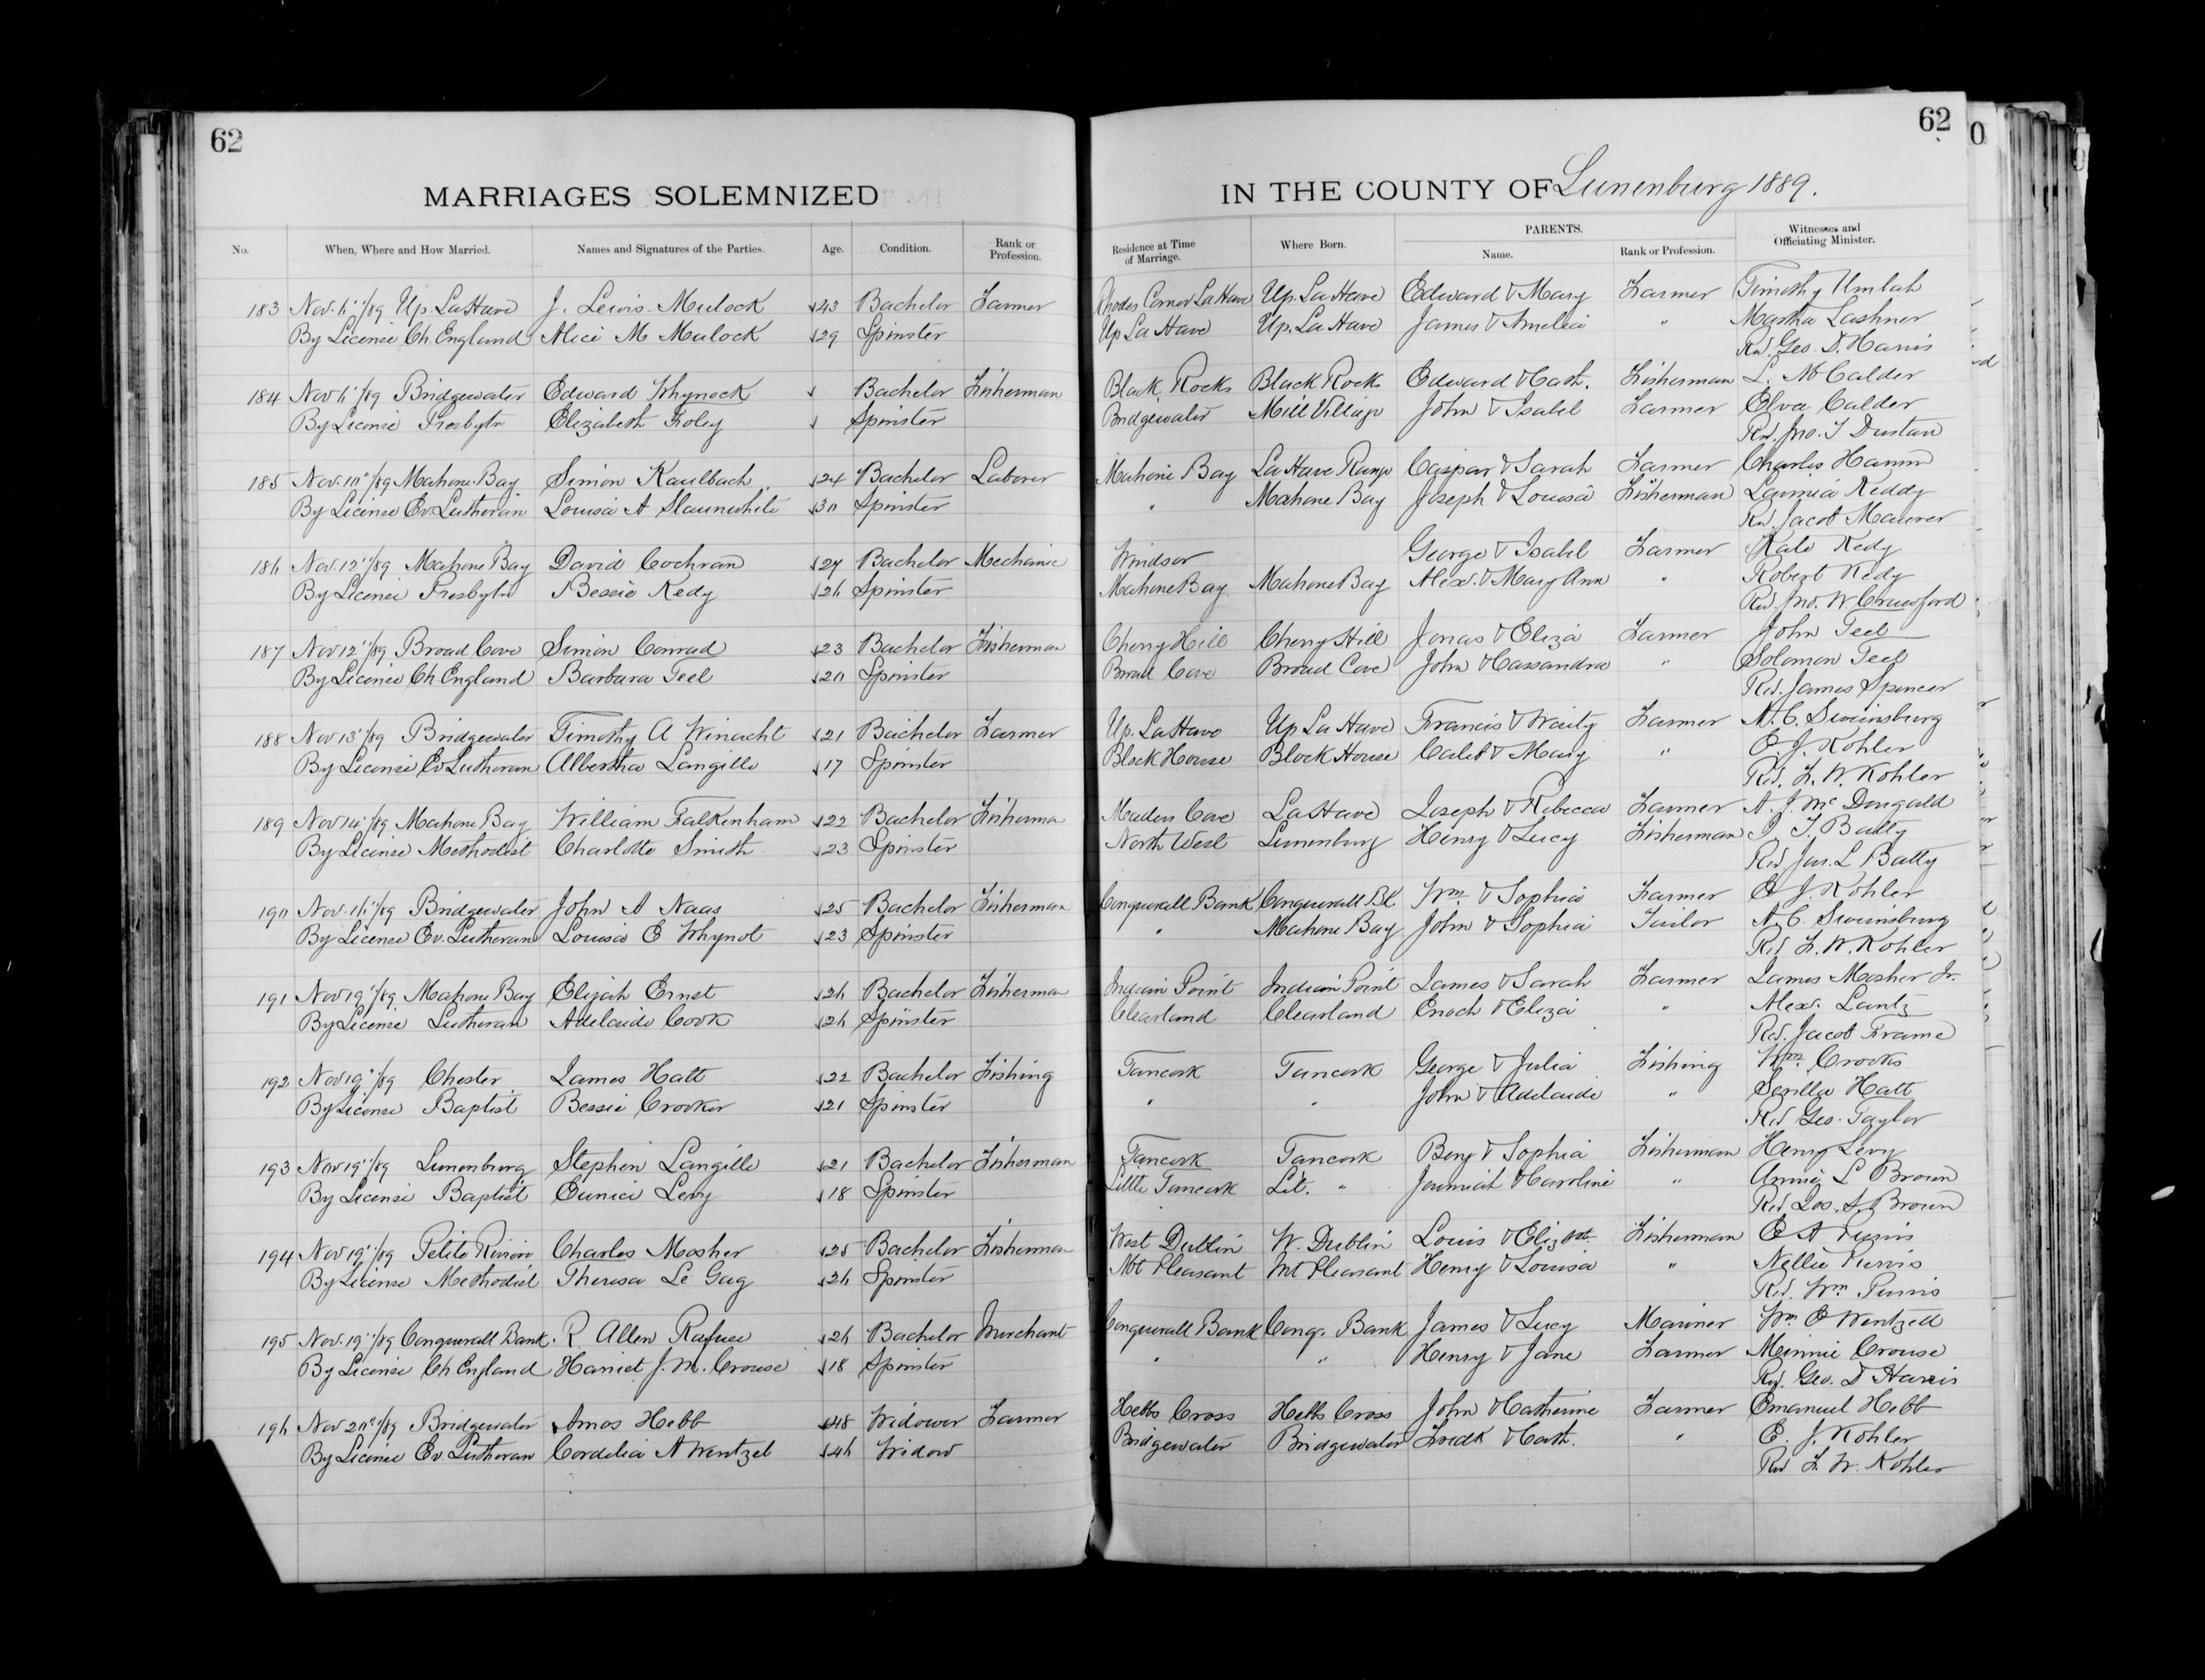 62
MARRIAGES SOLEMNIZED
No. When, Where and How Married. Names and Signatures of the Parties. Age. Condition. Rank or Profession.
183 Nov. 6"/89 Up. LaHave J. Lewis Mulock 43 Bachelor Farmer
By License Ch. England Alice M Mulock 29 Spinster
184 Nov 6"/89 Bridgewater Edward Whynock Bachelor Fisherman
By License Presbytn Elizabeth Foley Spinster
185 Nov. 10"/89 Mahone Bay Simon Kaulbach 24 Bachelor Laborer
By License Ev. Lutheran Louisa A Slaunwhite 30 Spinster
186 Nov. 12"/89 Mahone Bay David Cochran 27 Bachelor Mechanic
By License Presbytn Bessie Kedy 26 Spinster
187 Nov 12"/89 Broad Cove Simon Conrad 23 Bachelor Fisherman
By License Ch England Barbara Teel 20 Spinster
188 Nov 13"/89 Bridgewater Timothy A Winacht 21 Bachelor Farmer
By License Ev Lutheran Albertha Langille 17 Spinster
189 Nov 14"/89 Mahone Bay William Falkenham 22 Bachelor Fisherma
By License Methodist Charlotte Smith 23 Spinster
190 Nov. 16"/89 Bridgewater John A Naas 25 Bachelor Fisherman
By License Ev. Lutheran Louisa E Whynot 23 Spinster
191 Nov 19"/89 Mahone Bay Elijah Ernst 26 Bachelor Fisherman
By License Lutheran Adelaide Cook 26 Spinster
192 Nov 19"/89 Chester James Hatt 22 Bachelor Fishing
By License Baptist Bessie Crooker 21 Spinster
193 Nov 19"/89 Lunenburg Stephen Langille 21 Bachelor Fisherman
By License Baptist Eunice Levy 18 Spinster
194 Nov 19"/89 Petite Riviere Charles Mosher 25 Bachelor Fisherman
By License Methodist Theresa Le Gag 26 Spinster
195 Nov. 19"/89 Conquerall Bank. R Allen Rafuse 26 Bachelor Merchant
By License Ch. England Harriet J. M. Crouse 18 Spinster
196 Nov 20"/89 Bridgewater Amos Hebb 48 Widower Farmer
By License Ev. Lutheran Cordelia A Wentzel 46 Widow
62
IN THE COUNTY OF Lunenburg 1889.
Residence at Time of Marriage. Where Born. PARENTS. Name. Rank or Profession. Witnesses and Officiating Minister.
Rhodes Corner LaHave Up. LaHave Edward & Mary Farmer Timothy Umlah
Up LaHave Up. LaHave James & Amelia " Martha Lashner
Rev. Geo. D. Harris
Black Rocks Black Rocks Edward & Cath. Fisherman L. McCalder
Bridgewater Mill Village John & Isabel Farmer Elva Calder
Rev. Jno. F Dustan
Mahone Bay LaHave Range Caspar & Sarah Farmer Charles Hamm
" Mahone Bay Joseph & Louisa Fisherman Lavinia Keddy
Rev. Jacob Maurer
Windsor George & Isabel Farmer Kate Kedy
Mahone Bay Mahone Bay Alex. & Mary Ann " Robert Kedy
Rev. Jno. W Crawford
Cherry Hill Cherry Hill Jonas & Eliza Farmer John Teel
Broad Cove Broad Cove John & Cassandra " Solomon Teel
Rev. James Spencer
Up. LaHave Up LaHave Francis & Waity Farmer A. C. Swinsburg
Block House Block House Caleb & Mary " E. J. Kohler
Rev. F. W. Kohler
Maders Cove LaHave Joseph & Rebecca Farmer A. J. McDougald
North West Lunenburg Henry & Lucy Fisherman I. T. Batty
Rev Jas. L Batty
Conquerall Bank Conquerall Bk. Wm. & Sophia Farmer E J. Kohler
" Mahone Bay John & Sophia Tailor A. C. Swinsburg
Rev F. W. Kohler
Indian Point Indian Point James & Sarah Farmer James Mosher Jr.
Clearland Clearland Enoch & Eliza " Alex. Lantz
Rev. Jacob Frame
Tancook Tancook George & Julia Fishing Wm. Crooks
" " John & Adelaide " Serilla Hatt
Rev Geo. Taylor
Tancook Tancook Benj & Sophia Fisherman Henry Levy
Little Tancook Lit. " Jeremiah & Caroline " Annie L Brown
Rev Jos. S. Brown
West Dublin W. Dublin Louis & Elizbth Fisherman E A Purvis
Mt Pleasant Mt Pleasant Henry & Louisa " Nellie Purvis
Rev. Wm Purvis
Conquerall Bank Conq. Bank James & Lucy Mariner Wm E Wentzell
" " Henry & Jane Farmer Minnie Crouse
Rev. Geo. D Harris
Hebbs Cross Hebbs Cross John & Catherine Farmer Emanuel Hebb
Bridgewater Bridgewater Fredk & Cath. " E. J. Kohler
Rev F. W. Kohler